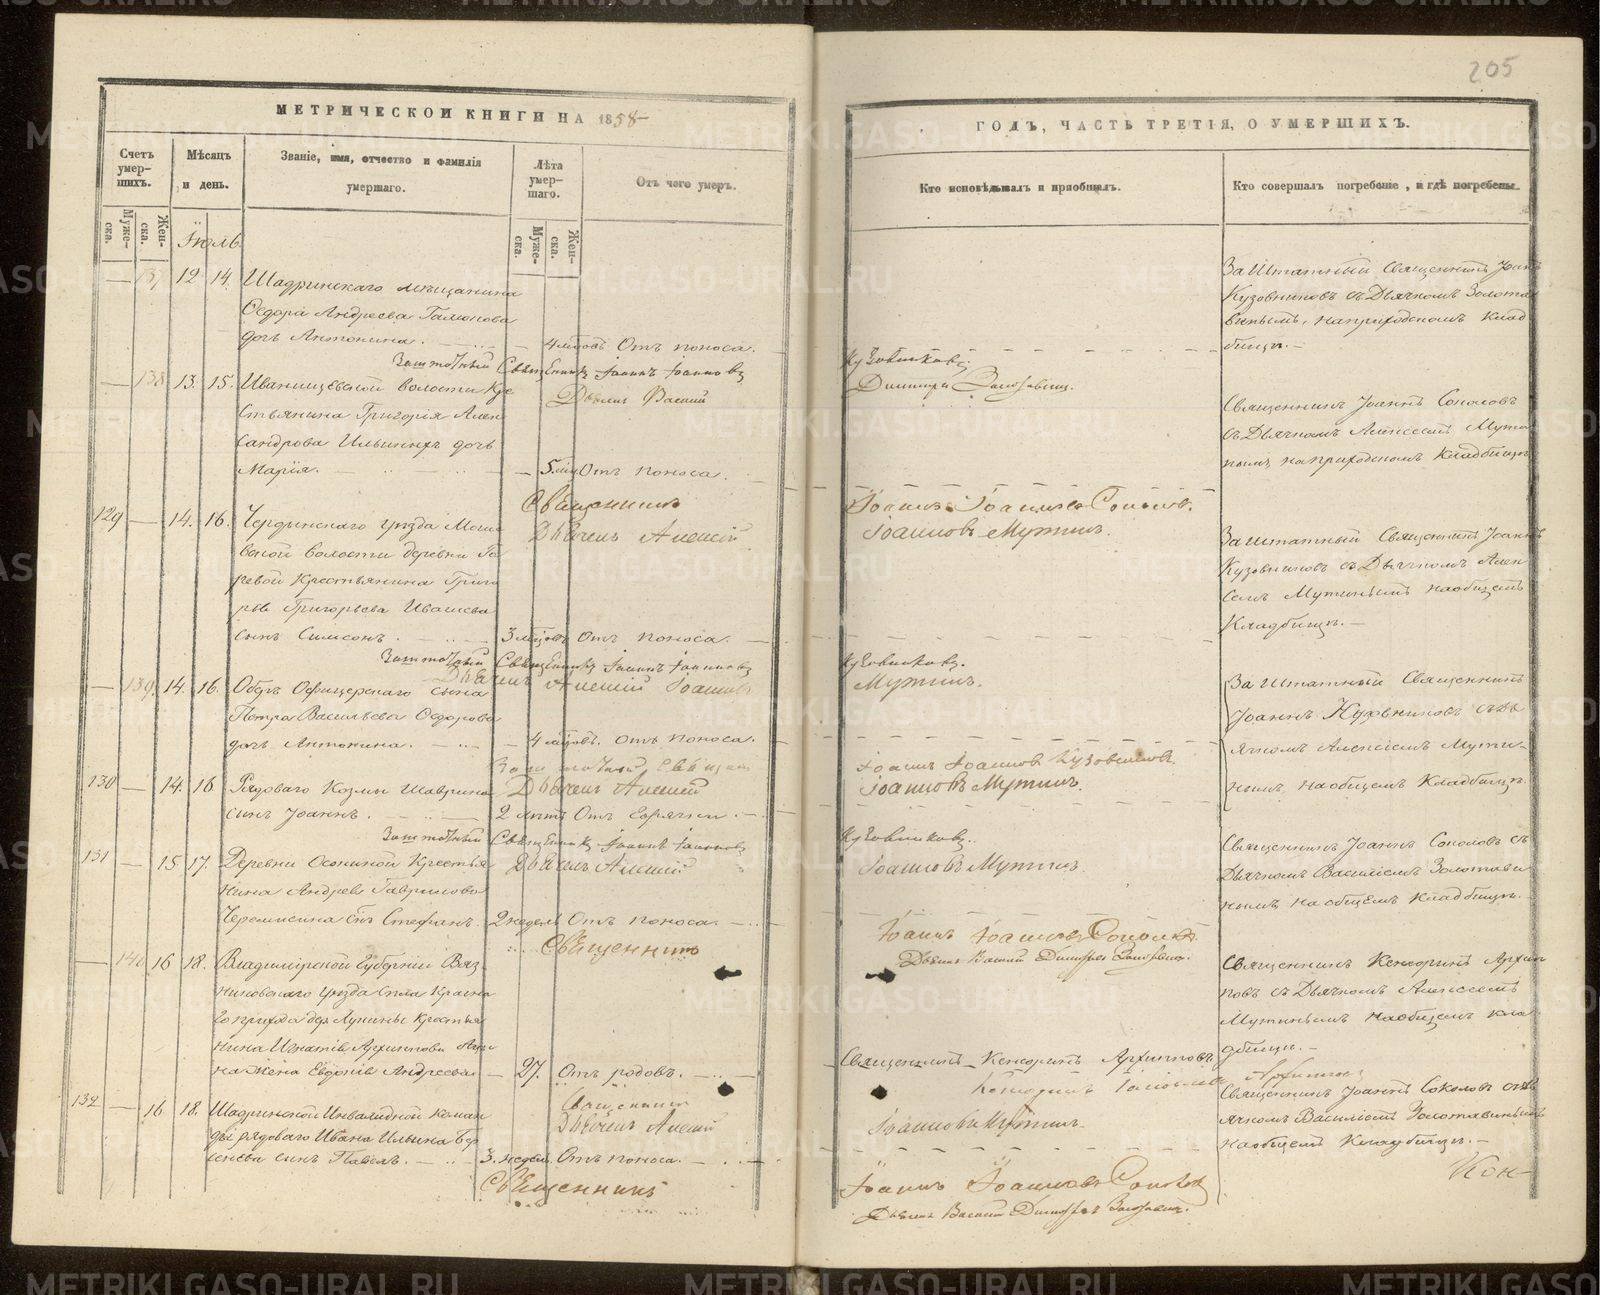 205
МЕТРИЧЕСКОЙ КНИГИ НА 1858
ГОДЪ, ЧАСТЬ ТРЕТІЯ, О УМЕРШИХЪ.
Счетъ умер-шихъ.
Муже-ска.
Жен-ска.
Мѣсяцъ и день.
Званіе, имя, отчество и фамилія умершаго.
Лѣта умер-шаго.
Муже-ска.
Жен-ска.
Отъ чего умеръ.
Кто исповѣдывалъ и пріобщалъ.
Кто совершалъ погребеніе, и гдѣ погребены.
Іюль
137 12 14. Шадринскаго мѣщанина
Ѳедора Андреева
дочь Антонина. 4 мѣсцовъ Отъ поноса.
Заштатный Священникъ Іоаннъ Іоанновъ
Кузовниковъ.
Дьячекъ Василій
Димитріевъ Золотавинъ.
Заштатный Священникъ Іоаннъ
Кузовниковъ съ Дьячкомъ Золота
винымъ, на приходскомъ клад
бищѣ.
138 13. 15. Иванищевской волости Кре
стьянина Григорія Алек
сандрова Ильиныхъ дочь
Марія. 5 мѣс. Отъ поноса.
Священникъ
Іоаннъ Іоанновъ Соколовъ.
Дьячекъ Алексій
Іоанновъ Мутинъ.
Священникъ Іоаннъ Соколовъ
съ Дьячкомъ Алексеемъ Мути
нымъ на приходскомъ Кладбищѣ
129 14. 16. Чердынскаго уѣзда
волости деревни Га
ревой Крестьянина Григо
рья Григорьева Ивашева
сынъ Симеонъ. 3 мѣсцовъ Отъ поноса.
Заштатный Священникъ Іоаннъ Іоанновъ
Кузовниковъ.
Дьячекъ Алексій Іоанновъ
Мутинъ.
Заштатный Священникъ Іоаннъ
Кузовниковъ съ Дьячкомъ Алек
сеемъ Мутинымъ на общемъ
Кладбищѣ.
139. 14. 16. Оберъ Офицерскаго сына
Петра Васильева Ѳедорова
дочь Антонина. 4 мѣсцовъ. Отъ поноса.
Заштатный Священ
Іоаннъ Іоанновъ Кузовниковъ.
Дьячекъ Алексій
Іоанновъ Мутинъ.
Заштатный Священникъ
Іоаннъ Кузовниковъ съ Дь
ячкомъ Алексіемъ Мути
нымъ на общемъ Кладбищѣ.
130 14. 16 Рядоваго Козмы Шаврина
сынъ Іоаннъ. 2 лѣтъ Отъ горячки.
Заштатный Священникъ Іоаннъ Іоанновъ
Кузовниковъ.
Дьячекъ Алексій
Іоанновъ Мутинъ.
131 15 17. Деревни Осокиной Крестья
нина Андрея Гаврилова
Черемисина сынъ Стефанъ. 2 недель Отъ поноса.
Священникъ
Іоаннъ Іоанновъ Соколовъ.
Дьячекъ Василій Димитріевъ Золотавинъ.
Священникъ Іоаннъ Соколовъ съ
Дьячкомъ Василіемъ Золотави
нымъ на общемъ Кладбищѣ.
140 16 18. Владимірской Губерніи Вяз
никовскаго уѣзда села Красна
го прихода дер. Лукины Крестья
нина Игнатія Архиппова
жена Евдокія Андреева 27. Отъ родовъ.
Священникъ Кенсоринъ Архипповъ.
Священникъ
Дьячекъ Алексій
Іоанновъ Мутинъ.
Священникъ Кенсоринъ Архип
повъ съ Дьячкомъ Алексеемъ
Мутинымъ на общемъ кла
дбищѣ.
132 16 18. Шадринской Инвалидной Коман
ды рядоваго Ивана Ильина Бер
сенева сынъ Павелъ. 3. недел. Отъ поноса.
Священникъ
Іоаннъ Іоанновъ Соколовъ
Дьячекъ Василій Димитріевъ Золотавинъ.
Священникъ Іоаннъ Соколовъ съ Дь
ячкомъ Василіемъ Золотавинымъ
на общемъ Кладбищѣ.
METRIKI.GASO-URAL.RU